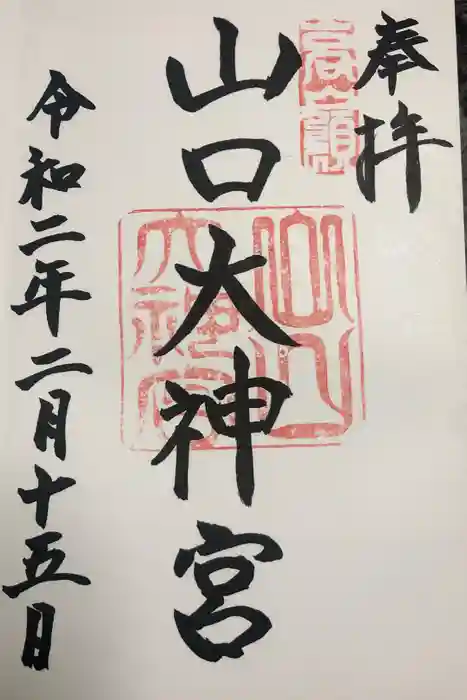 奉拝
高嶺
山口大神宮
令和二年二月十五日